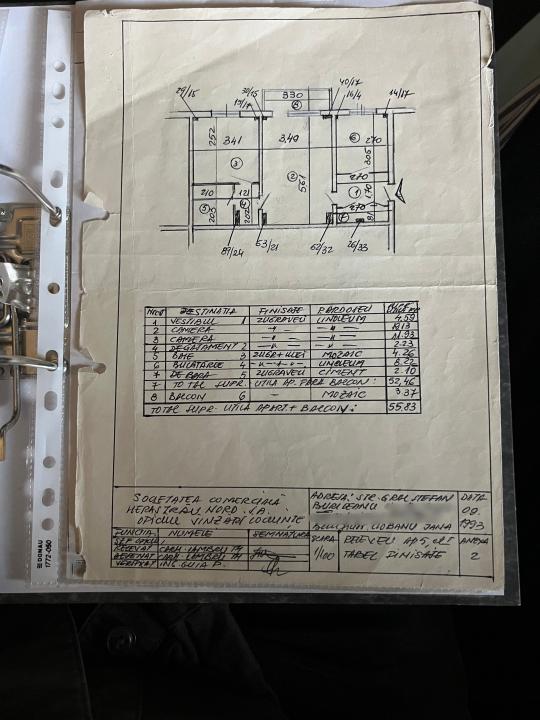 29/15
30/15
17/17
330
8
40/17
16/4
14/17
252
341
3
3,40
6
270
305
2
561
270
1
170
210
121
5
205
4
202
270
7
81
89/24
53/21
62/32
26/33
DESTINATIA FINISAJE PARDOSELI
1 VESTIBUL 1 ZUGRAVELI LINOLEUM 4.59
2 CAMERA -"- -"-
3 CAMERA -"- -"- 11.93
4 DEGAJAMENT 2 -"- -"- 2.23
5 BAIE 3 ZUGR+ULEI MOZAIC 4.26
6 BUCATARIE 4 -"- LINOLEUM 8.22
7 DEBARA 5 ZUGRAVELI CIMENT 2.10
7 TOTAL SUPR. UTILA AP. FARA BALCON: 52,46
8 BALCON 6 - MOZAIC 3.37
TOTAL SUPR. UTILA APART + BALCON: 55.83
SOCIETATEA COMERCIALĂ
HERASTRAU NORD S.A.
OFICIUL VINZARI LOCUINTE
ADRESA: STR. GRAL STEFAN
BURILEANU
CIOBANU JANA
DATA
09.
1993
FUNCTIA NUMELE SEMNATURA
SEF OFICIU
RELEVAT CARH. LAMBRU M
DESENAT CARH. LAMBRU M
VERIFICAT ING. GUIA P.
SCARA
1/100
RELEVEU AP 5,
TABEL FINISAJE
ANEXA
2
DONAU
1772-050